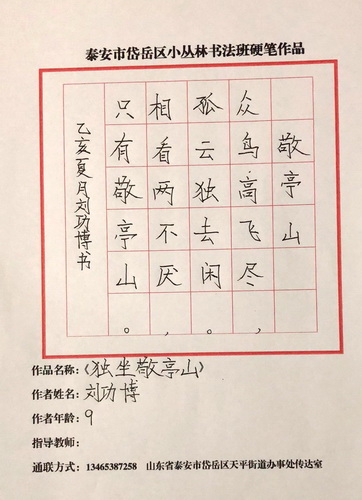 泰安市岱岳区小丛林书法班硬笔作品
敬亭山
众鸟高飞尽，
孤云独去闲。
相看两不厌，
只有敬亭山。
乙亥夏月刘功博书
作品名称：《独坐敬亭山》
作者姓名：刘功博
作者年龄：9
指导教师：
通联方式：13465387258 山东省泰安市岱岳区天平街道办事处传达室